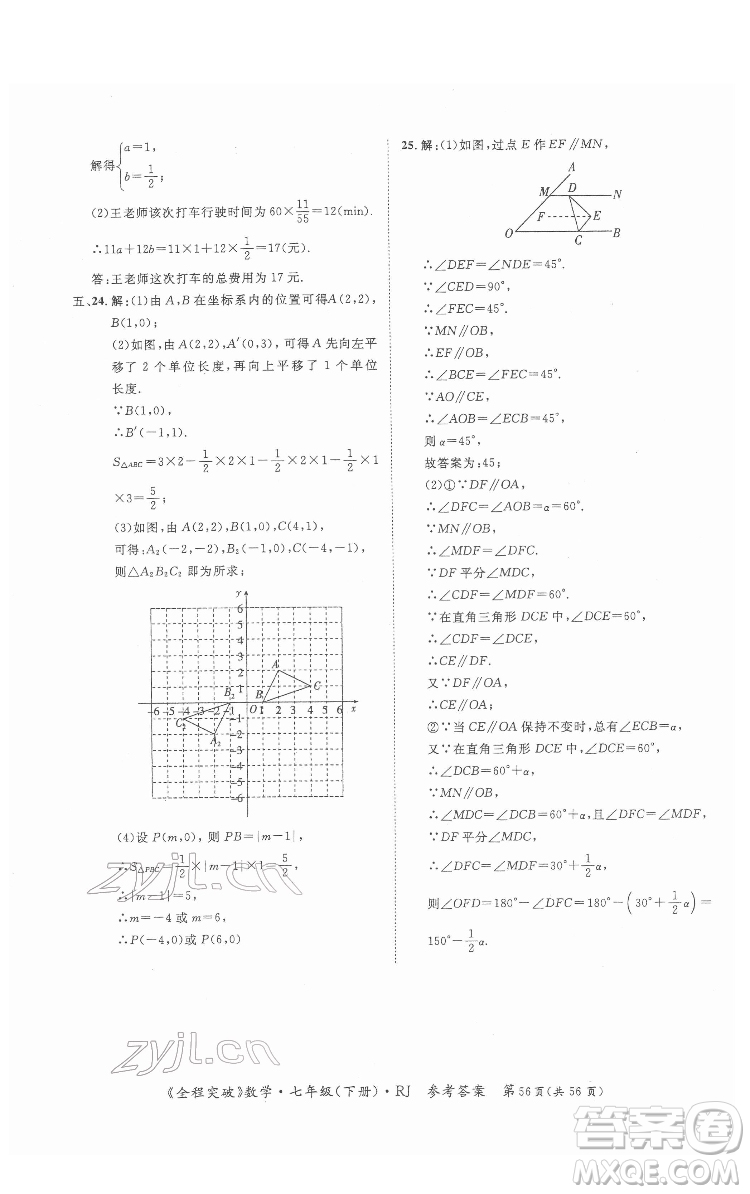 解得{a=1,
b=1/2;
(2)王老师该次打车行驶时间为60×11/55=12(min).
∴11a+12b=11×1+12×1/2=17(元).
答:王老师这次打车的总费用为17元.
五、24.解:(1)由A,B在坐标系内的位置可得A(2,2),
B(1,0);
(2)如图,由A(2,2),A′(0,3),可得A先向左平
移了2个单位长度,再向上平移了1个单位
长度.
∵B(1,0),
∴B′(-1,1).
S△ABC=3×2-1/2×2×1-1/2×2×1-1/2×1
×3=5/2;
(3)如图,由A(2,2),B(1,0),C(4,1),
可得:A₂(-2,-2),B₂(-1,0),C₂(-4,-1),
则△A₂B₂C₂即为所求;
y
6
5
4
3
2
1
A
B
C
B₂
C₂
A₂
-6 -5 -4 -3 -2 -1 O 1 2 3 4 5 6 x
-1
-2
-3
-4
-5
-6
(4)设P(m,0),则PB=|m-1|,
∴S△PBC=1/2×|m-1|×1=5/2,
∴|m-1|=5,
∴m=-4或m=6,
∴P(-4,0)或P(6,0)
25.解:(1)如图,过点E作EF∥MN,
A
M D N
F E
O C B
∴∠DEF=∠NDE=45°.
∵∠CED=90°,
∴∠FEC=45°.
∵MN∥OB,
∴EF∥OB,
∴∠BCE=∠FEC=45°.
∵AO∥CE,
∴∠AOB=∠ECB=45°,
则α=45°,
故答案为:45;
(2)①∵DF∥OA,
∴∠DFC=∠AOB=α=60°.
∵MN∥OB,
∴∠MDF=∠DFC=60°.
∵DF平分∠MDC,
∴∠CDF=∠MDF=60°.
∵在直角三角形DCE中,∠DCE=60°,
∴∠CDF=∠DCE,
∴CE∥DF.
又∵DF∥OA,
∴CE∥OA;
②∵当CE∥OA保持不变时,总有∠ECB=α,
又∵在直角三角形DCE中,∠DCE=60°,
∴∠DCB=60°+α.
∵MN∥OB,
∴∠MDC=∠DCB=60°+α,且∠DFC=∠MDF,
∵DF平分∠MDC,
∴∠DFC=∠MDF=30°+1/2α,
则∠OFD=180°-∠DFC=180°-(30°+1/2α)=
150°-1/2α.
zyjl.cn
zyjl.cn
《全程突破》数学·七年级(下册)·RJ 参考答案 第56页(共56页)
答案圈
MXQE.COM